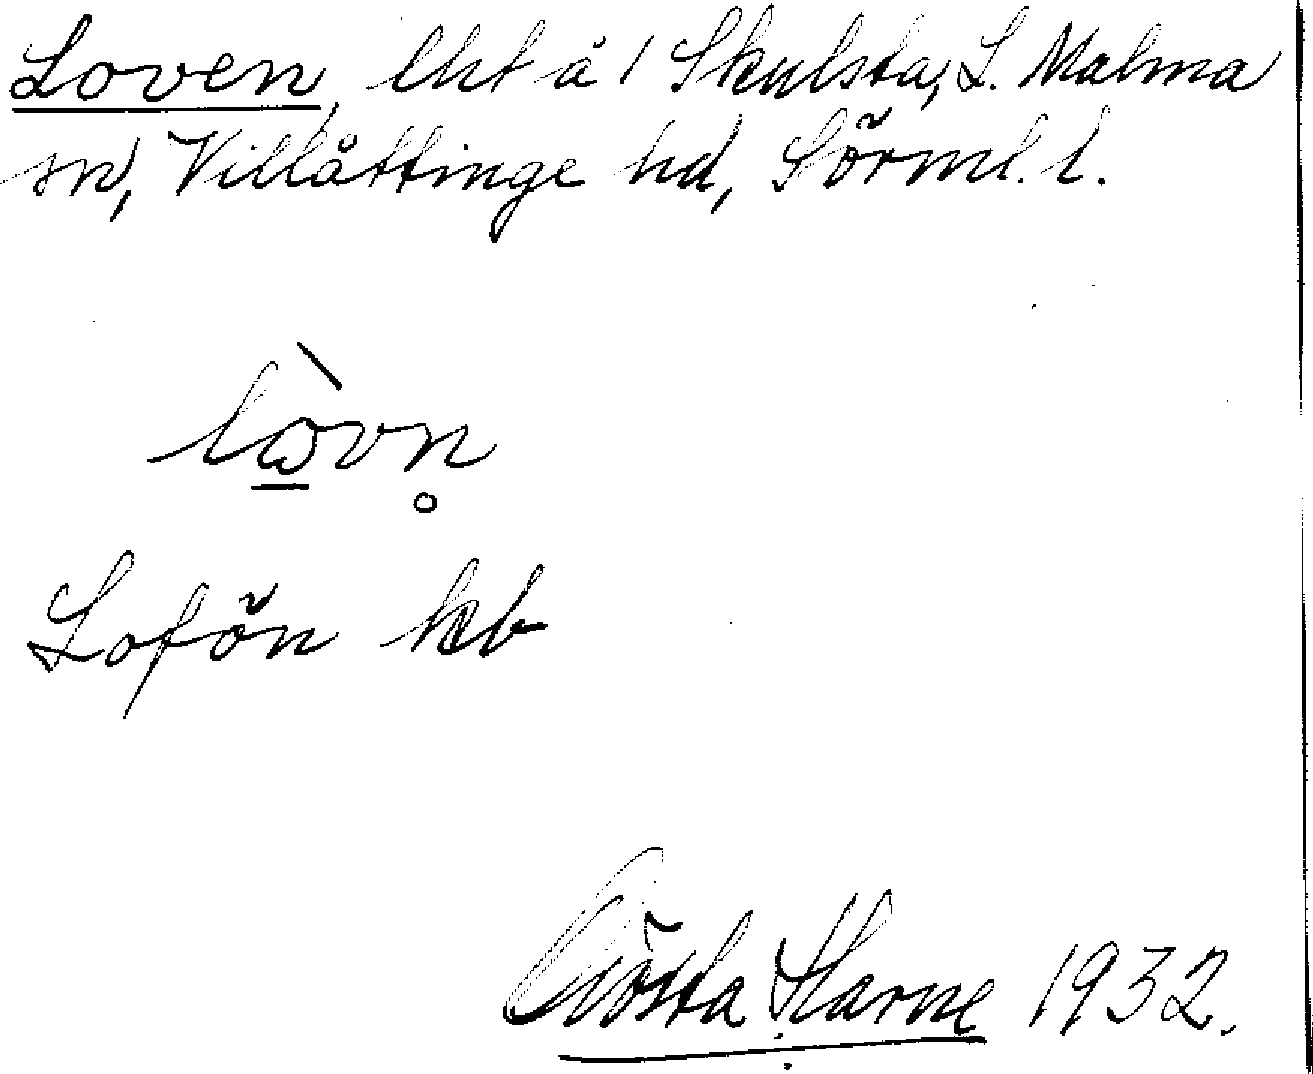 Loven, lht å 1 Skulsta, L. Malma
sn, Villåttinge hd, Sörml. l.
lò̱vn̥
Lofön kb
Gösta Harne 1932.